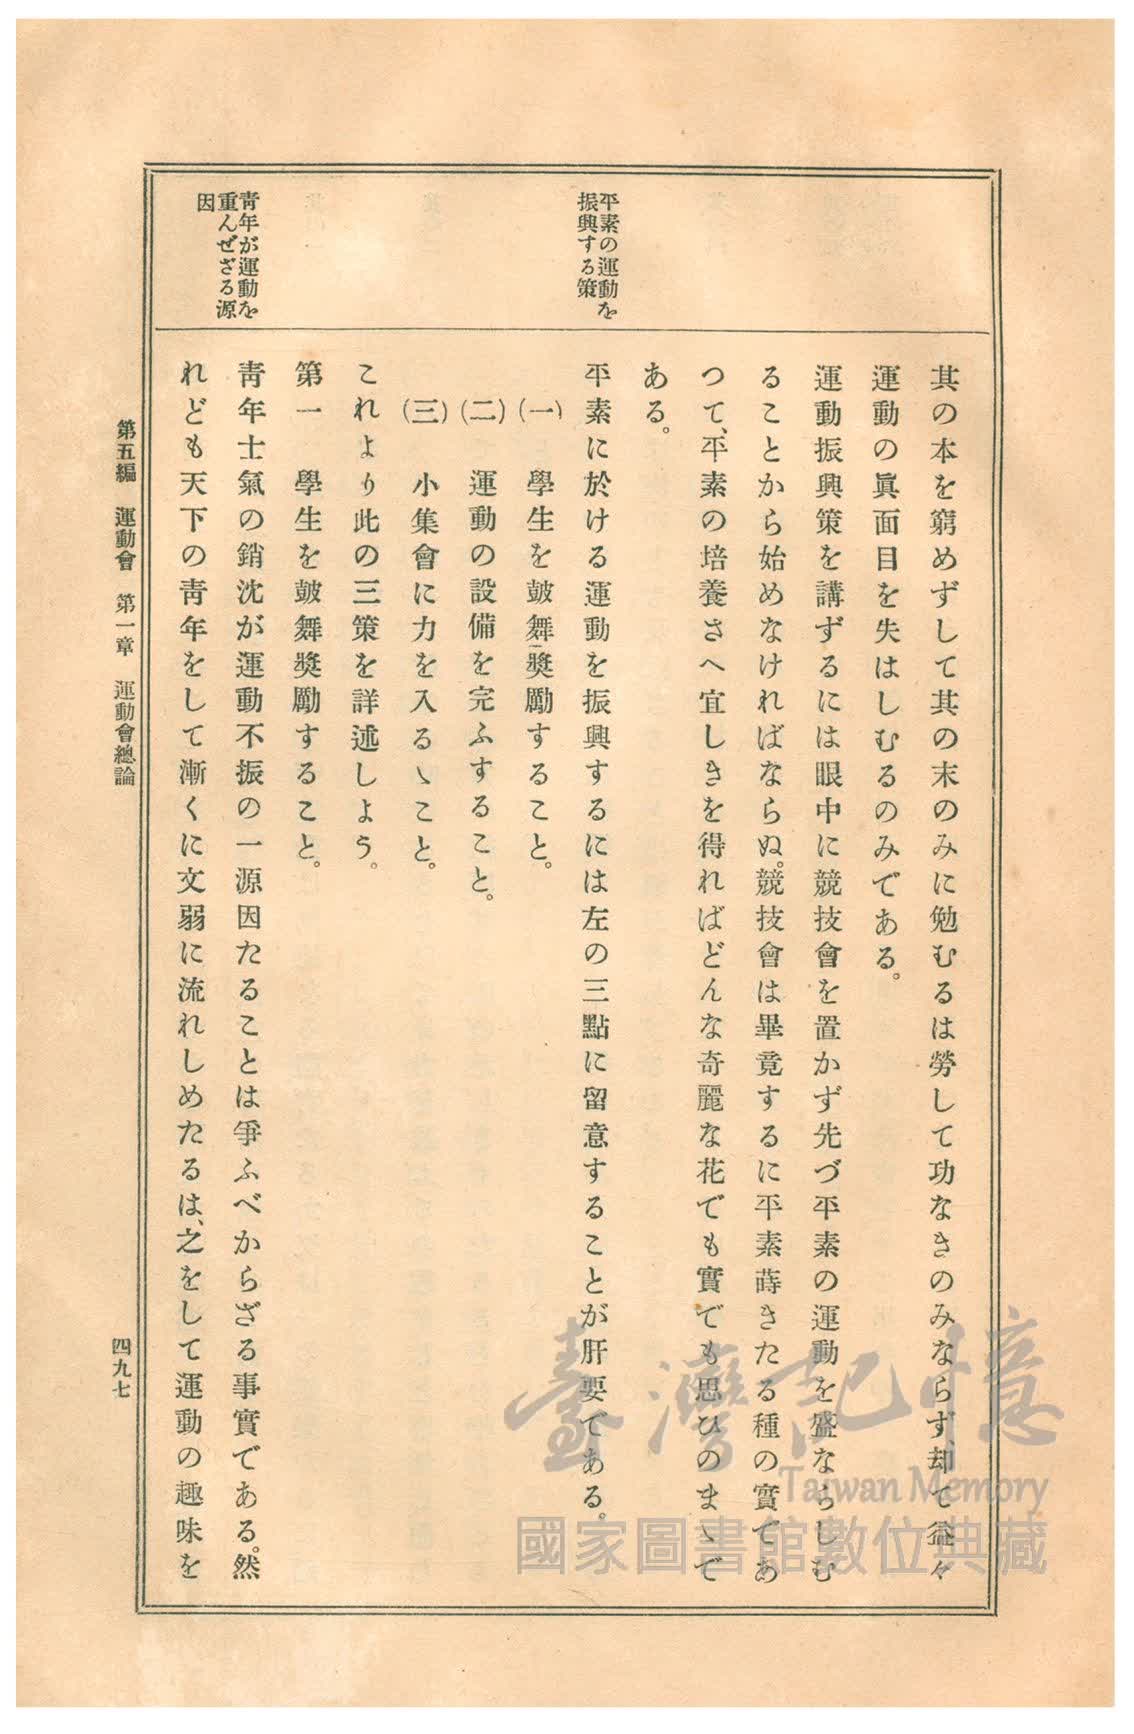 平素の運動を
振興する策
靑年が運動を
重んぜざる源
因
其の本を窮めずして其の末のみに勉むるは勞して功なきのみならず、却て益々
運動の眞面目を失はしむるのみである。
運動振興策を講ずるには眼中に競技會を置かず先づ平素の運動を盛ならしむ
ることから始めなければならぬ。競技會は畢竟するに平素蒔きたる種の實であ
つて、平素の培養さへ宜しきを得ればどんな奇麗な花でも實でも思ひのまゝで
ある。
平素に於ける運動を振興するには左の三點に留意することが肝要である。
(一) 學生を皷舞奬勵すること。
(二) 運動の設備を完ふすること。
(三) 小集會に力を入るゝこと。
これより此の三策を詳述しよう。
第一 學生を皷舞奬勵すること。
靑年士氣の銷沈が運動不振の一源因たることは爭ふべからざる事實である。然
れども天下の靑年をして漸くに文弱に流れしめたるは、之をして運動の趣味を
第五編 運動會 第一章 運動會總論
四九七
臺灣記憶
Taiwan Memory
國家圖書館數位典藏